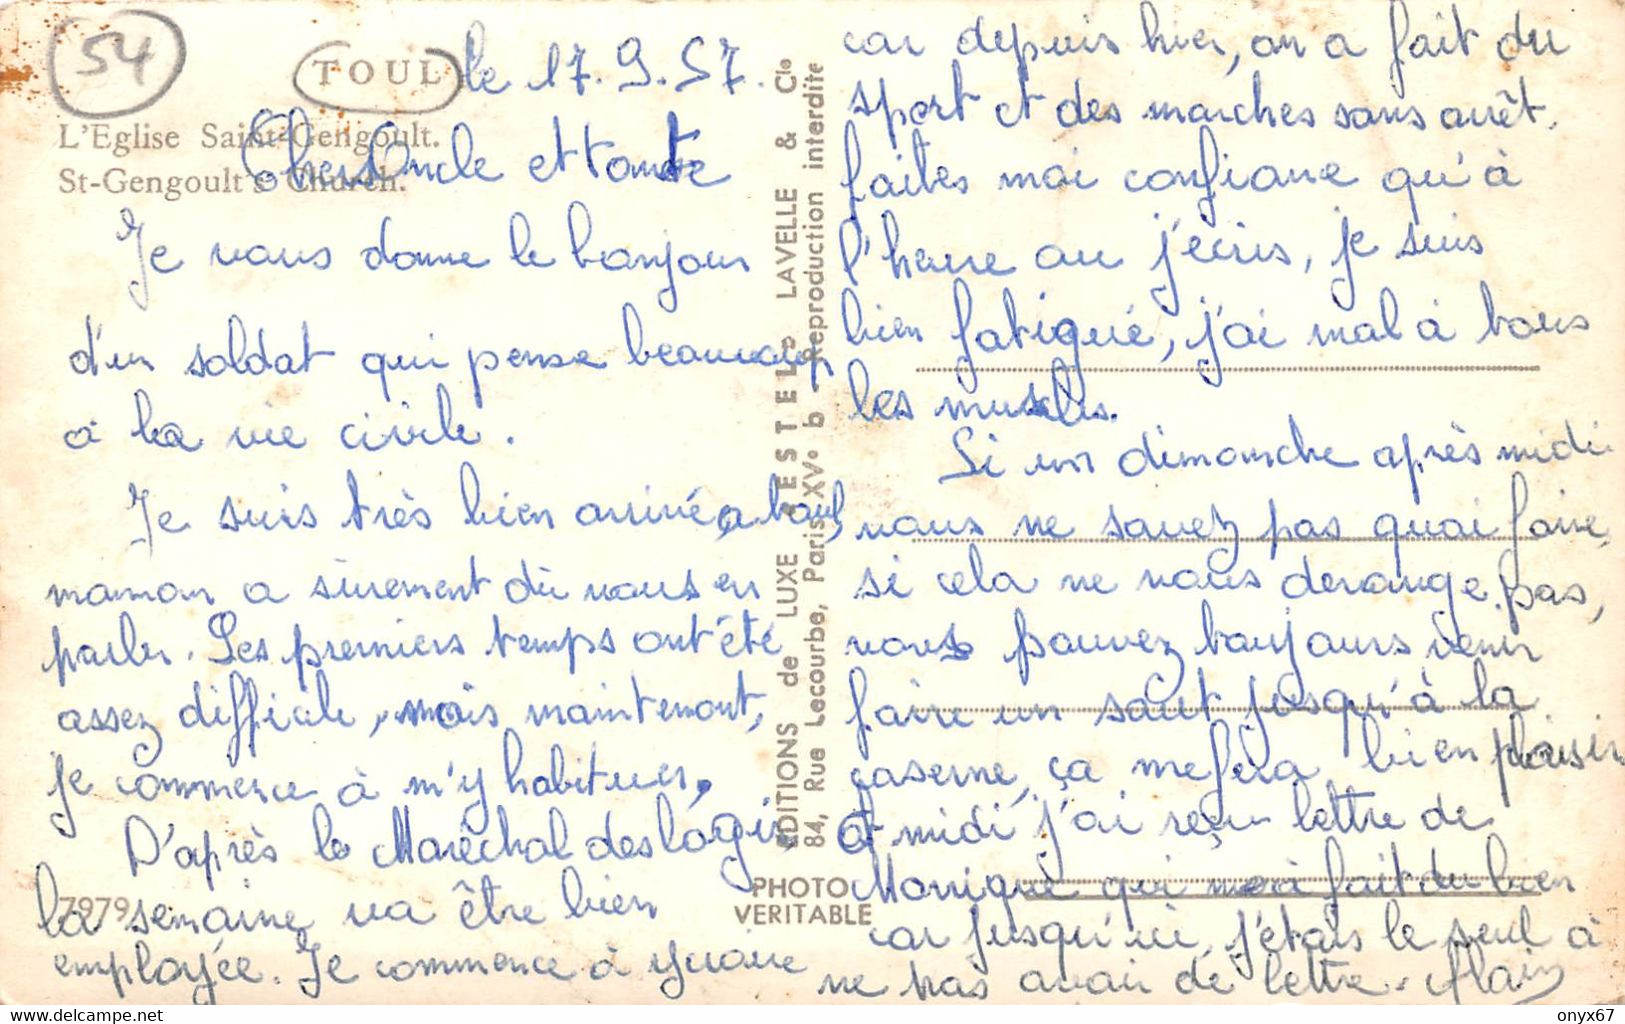 54
TOUL
le 17.9.57.
L'Eglise Saint-Gengoult.
St-Gengoult's Church.
Cher Oncle et tante
Je vous donne le bonjour
d'un soldat qui pense beaucoup
à la vie civile.
Je suis très bien arrivé, a Toul,
maman a surement dû vous en
parler. Les premiers temps ont été
assez difficile, mais maintenant,
je commence à m'y habituer.
D'après le Maréchal des logis
7979
la semaine va être bien
employée. Je commence à y croire
EDITIONS de LUXE "ESTEL" LAVELLE & Cie
84, Rue Lecourbe, Paris XVe b - Reproduction interdite
PHOTO
VERITABLE
car depuis hier, on a fait du
sport et des marches sans arrêt.
faites moi confiance qu'à
l'heure ou j'écris, je suis
bien fatigué, j'ai mal à tous
les muscles.
Si un dimanche après midi
vous ne savez pas quoi faire,
si cela ne vous derange pas,
vous pouvez toujours venir
faire un saut jusqu'à la
caserne, ça me fera bien plaisir
A midi j'ai reçu lettre de
Monique qui m'a fait du bien
car jusqu'ici, j'étais le seul à
ne pas avoir de lettre. Alain
onyx67